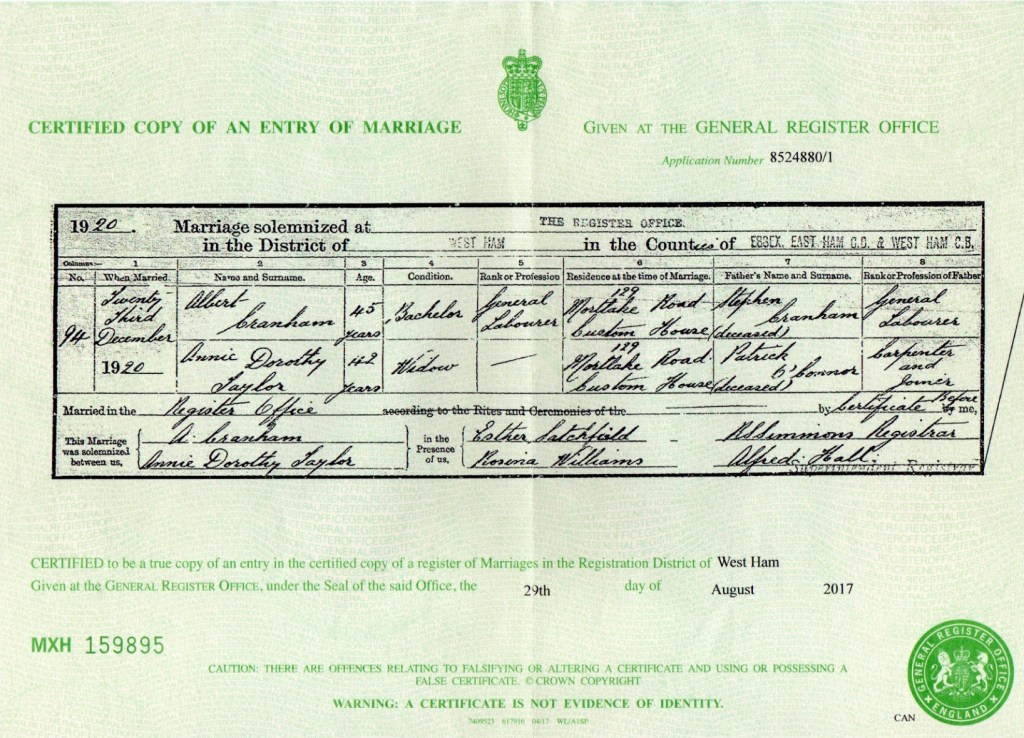 CERTIFIED COPY OF AN ENTRY OF MARRIAGE
GIVEN AT THE GENERAL REGISTER OFFICE
Application Number 8524880/1
1920. Marriage solemnized at THE REGISTER OFFICE.
in the District of WEST HAM in the Counties of ESSEX, EAST HAM C.B. & WEST HAM C.B.
Columns:— 1 2 3 4 5 6 7 8
No. When Married. Name and Surname. Age. Condition. Rank or Profession Residence at the time of Marriage. Father's Name and Surname. Rank or Profession of Father
94 Twenty Third December 1920
Albert Cranham 45 years Bachelor General Labourer 129 Mortlake Road Custom House Stephen Cranham (deceased) General Labourer
Annie Dorothy Taylor 42 years Widow — 129 Mortlake Road Custom House Patrick O'Connor (deceased) Carpenter and Joiner
Married in the Register Office according to the Rites and Ceremonies of the by Certificate Before by me,
This Marriage was solemnized between us, A. Cranham Annie Dorothy Taylor
in the Presence of us, Esther Satchfield Rosina Williams
RSSimmons Registrar
Alfred Hall.
Superintendent Registrar
CERTIFIED to be a true copy of an entry in the certified copy of a register of Marriages in the Registration District of West Ham
Given at the GENERAL REGISTER OFFICE, under the Seal of the said Office, the 29th day of August 2017
MXH 159895
CAUTION: THERE ARE OFFENCES RELATING TO FALSIFYING OR ALTERING A CERTIFICATE AND USING OR POSSESSING A
FALSE CERTIFICATE. © CROWN COPYRIGHT
WARNING: A CERTIFICATE IS NOT EVIDENCE OF IDENTITY.
CAN
GENERAL REGISTER OFFICE
ENGLAND